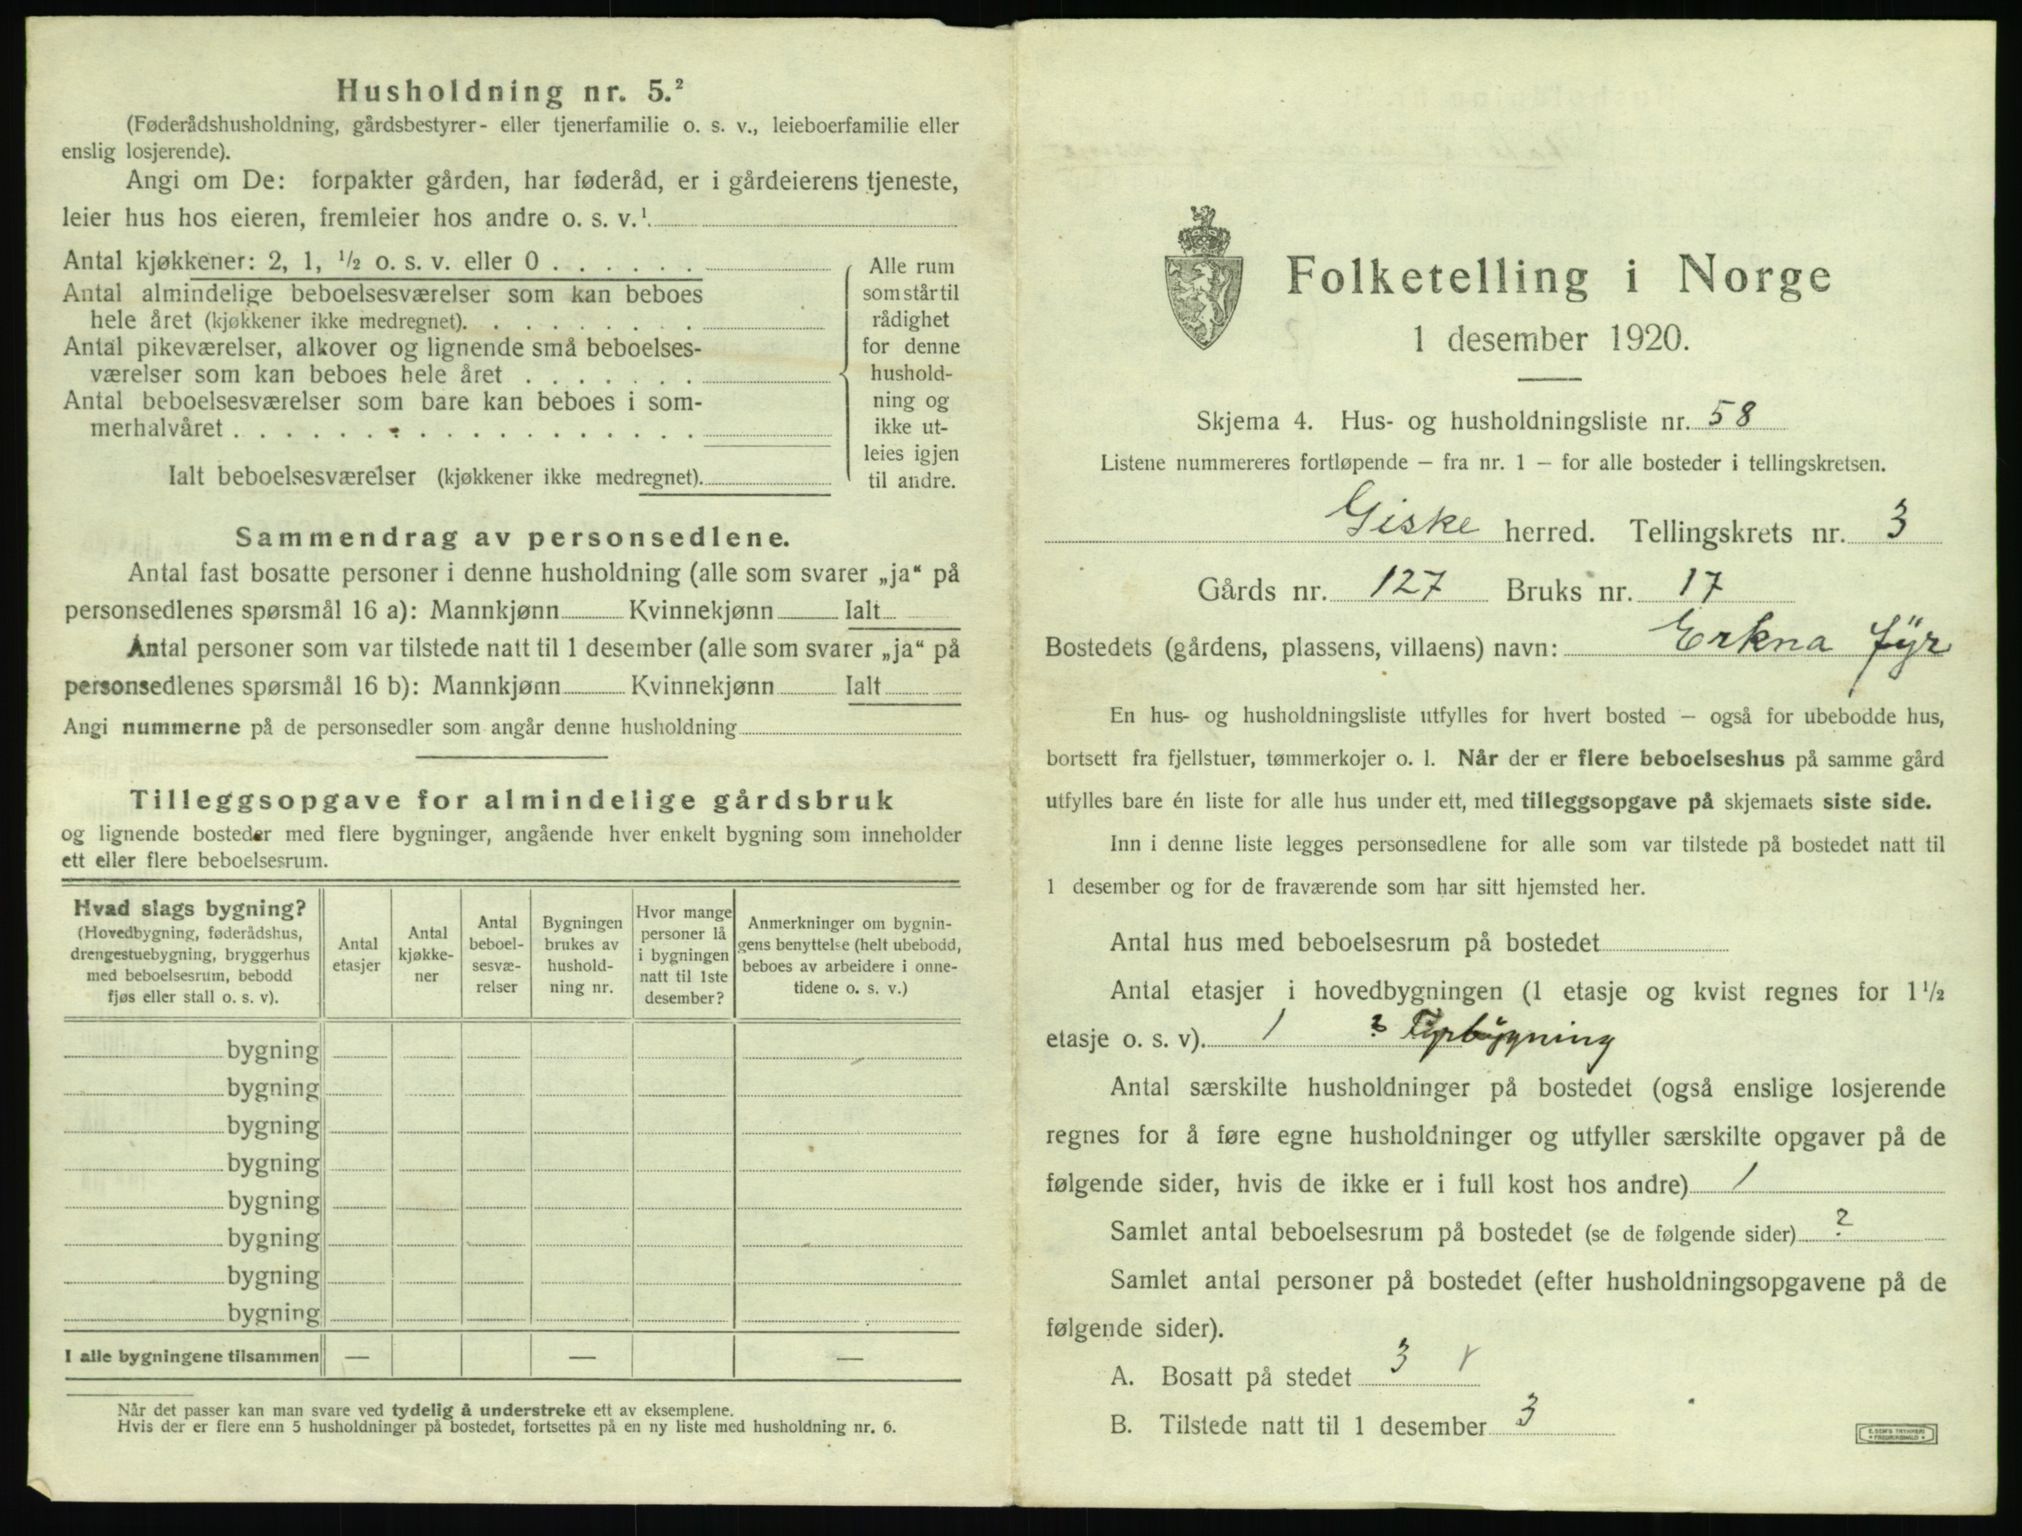 Husholdning nr. 5.²
(Føderådshusholdning, gårdsbestyrer- eller tjenerfamilie o. s. v., leieboerfamilie eller
enslig losjerende).
Angi om De: forpakter gården, har føderåd, er i gårdeierens tjeneste,
leier hus hos eieren, fremleier hos andre o. s. v.¹
Antal kjøkkener: 2, 1, ½ o. s. v. eller 0 . . . . . .
Antal almindelige beboelsesværelser som kan beboes
hele året (kjøkkener ikke medregnet). . . . . . . . .
Antal pikeværelser, alkover og lignende små beboelses-
værelser som kan beboes hele året . . . . . . .
Antal beboelsesværelser som bare kan beboes i som-
merhalvåret . . . . . . . . . . . . . . . . . .
Ialt beboelsesværelser (kjøkkener ikke medregnet).
Alle rum
som står til
rådighet
for denne
hushold-
ning og
ikke ut-
leies igjen
til andre.
Sammendrag av personsedlene.
Antal fast bosatte personer i denne husholdning (alle som svarer „ja“ på
personsedlenes spørsmål 16 a): Mannkjønn Kvinnekjønn Ialt
Antal personer som var tilstede natt til 1 desember (alle som svarer „ja“ på
personsedlenes spørsmål 16 b): Mannkjønn Kvinnekjønn Ialt
Angi nummerne på de personsedler som angår denne husholdning
Tilleggsopgave for almindelige gårdsbruk
og lignende bosteder med flere bygninger, angående hver enkelt bygning som inneholder
ett eller flere beboelsesrum.
Hvad slags bygning?
(Hovedbygning, føderådshus,
drengestuebygning, bryggerhus
med beboelsesrum, bebodd
fjøs eller stall o. s. v).
Antal
etasjer
Antal
kjøkke-
ner
Antal
beboel-
sesvæ-
relser
Bygningen
brukes av
hushold-
ning nr.
Hvor mange
personer lå
i bygningen
natt til 1ste
desember?
Anmerkninger om bygnin-
gens benyttelse (helt ubebodd,
beboes av arbeidere i onne-
tidene o. s. v.)
bygning
bygning
bygning
bygning
bygning
bygning
bygning
bygning
I alle bygningene tilsammen — — —
Når det passer kan man svare ved tydelig å understreke ett av eksemplene.
Hvis der er flere enn 5 husholdninger på bostedet, fortsettes på en ny liste med husholdning nr. 6.
Folketelling i Norge
1 desember 1920.
Skjema 4. Hus- og husholdningsliste nr. 58
Listene nummereres fortløpende – fra nr. 1 – for alle bosteder i tellingskretsen.
Giske herred. Tellingskrets nr. 3
Gårds nr. 127 Bruks nr. 17
Bostedets (gårdens, plassens, villaens) navn: Erkna fyr
En hus- og husholdningsliste utfylles for hvert bosted – også for ubebodde hus,
bortsett fra fjellstuer, tømmerkojer o. l. Når der er flere beboelseshus på samme gård
utfylles bare én liste for alle hus under ett, med tilleggsopgave på skjemaets siste side.
Inn i denne liste legges personsedlene for alle som var tilstede på bostedet natt til
1 desember og for de fraværende som har sitt hjemsted her.
Antal hus med beboelsesrum på bostedet
Antal etasjer i hovedbygningen (1 etasje og kvist regnes for 1½
etasje o. s. v). 1 ? Fyrbygning
Antal særskilte husholdninger på bostedet (også enslige losjerende
regnes for å føre egne husholdninger og utfyller særskilte opgaver på de
følgende sider, hvis de ikke er i full kost hos andre) 1
Samlet antal beboelsesrum på bostedet (se de følgende sider) ?
Samlet antal personer på bostedet (efter husholdningsopgavene på de
følgende sider).
A. Bosatt på stedet 3
B. Tilstede natt til 1 desember 3